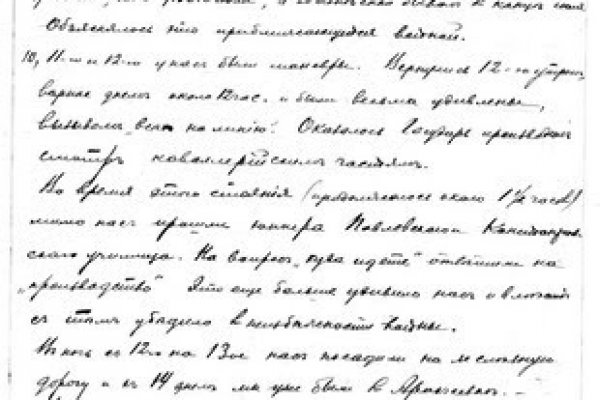 Объяснялось это приближающейся войной.
10, 11-го и 12-го у нас были маневры. Вернулись 12-го утром,
вернее днем около 12 час. и были весьма удивлены,
вызовом "всех на линию". Оказалось Государь производил
смотр кавалерийским частям.
Во время этого стояния (продолжалось около 1½ часов)
мимо нас прошли юнкера Павловского
ского училища. На вопрос "куда идете" отвѣтили на
"производство" Это еще больше удивило нас и
с тѣм убедило в неизбежности войны.
В ночь с 12го на 13ое нас посадили на железную
дорогу и с 14 днем мы уже были в